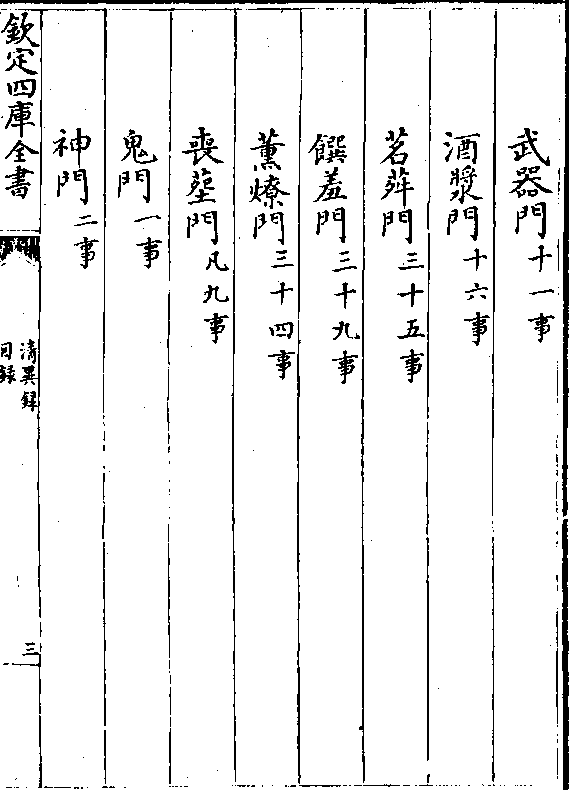 武器門十一事
酒漿門十六事
茗荈門三十五事
饌羞門三十九事
薰燎門三十四事
喪葬門凡九事
鬼門一事
神門二事
欽定四庫全書
清異録
目録
三